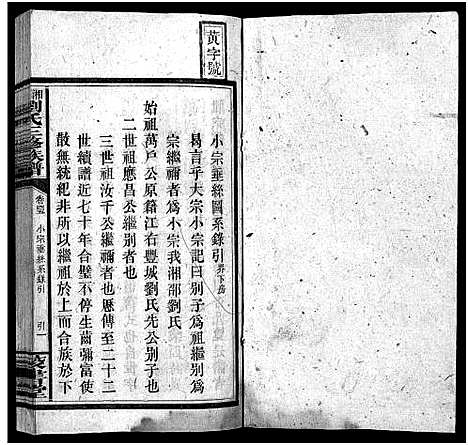 黃字號
小宗垂絲圖系錄引
曷言乎大宗小宗記曰別子為祖繼別為
宗繼禰者為小宗我湘邵劉氏
始祖萬戶公原籍江右豐城劉氏先公別子也
二世祖應昌公繼別者也
三世祖汝千公繼禰者也歷傳至二十二
世續譜近七十年合璧不停生齒彌富使
散無統紀非所以繼祖於上而合族於下
湘
劉氏三修族譜
小宗垂絲系錄引
引一